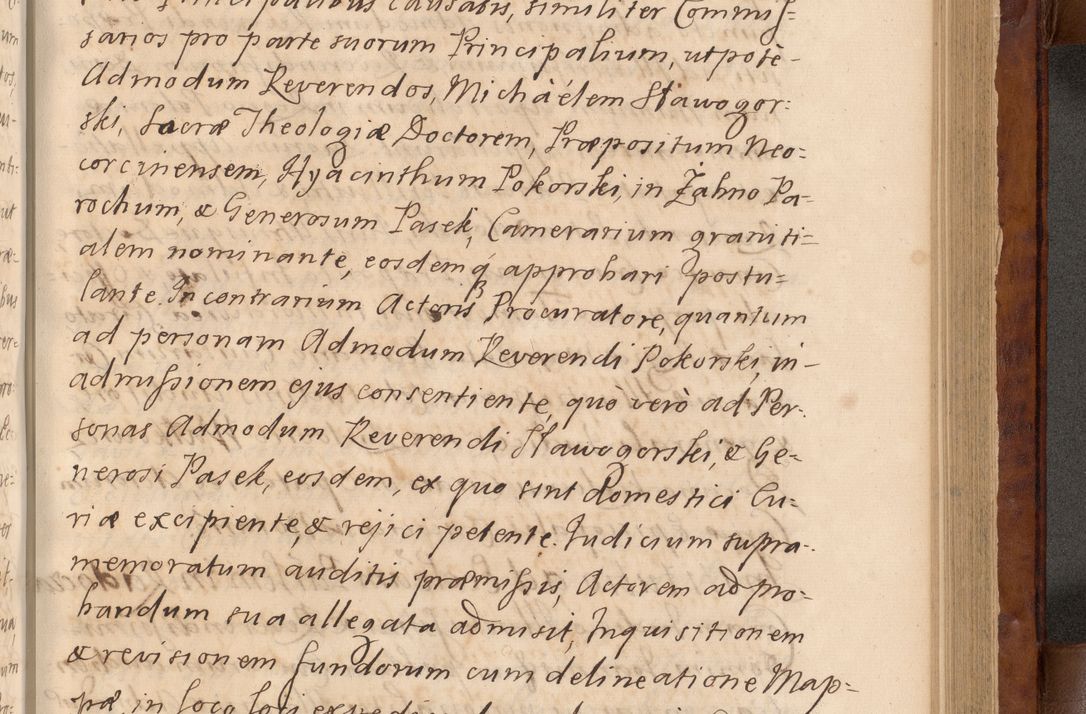 Principalibus causatis, similiter Commis=
sarios pro parte suorum Principalium, utpotè
Admodum Reverendos, Michaélem Stawogor:
ski, Sacræ Theologiæ Doctorem, Præpositum Neo=
corcinensem, Hyacinthum Pokorski, in Żabno Pa=
rochum, & Generosum Pasek, Camerarium graniti=
alem nominante, eosdemq́ approbari postu=
lante. In contrarium Actoris Procuratore, quantum
ad personam Admodum Reverendi Pokorski, in=
admissionem ejus consentiente, quò verò ad Per=
sonas Admodum Reverendi Stawogorski, & Ge=
nerosi Pasek, eosdem, ex quo sint domestici Cu=
riæ excipiente, & rejici petente. Iudicium supra=
memoratum auditis præmissis, Actorem ad pro=
bandum sua allegata admisit, Inquisitionem
& revisionem fundorum cum delineatione Map=
pæ, in loco loci